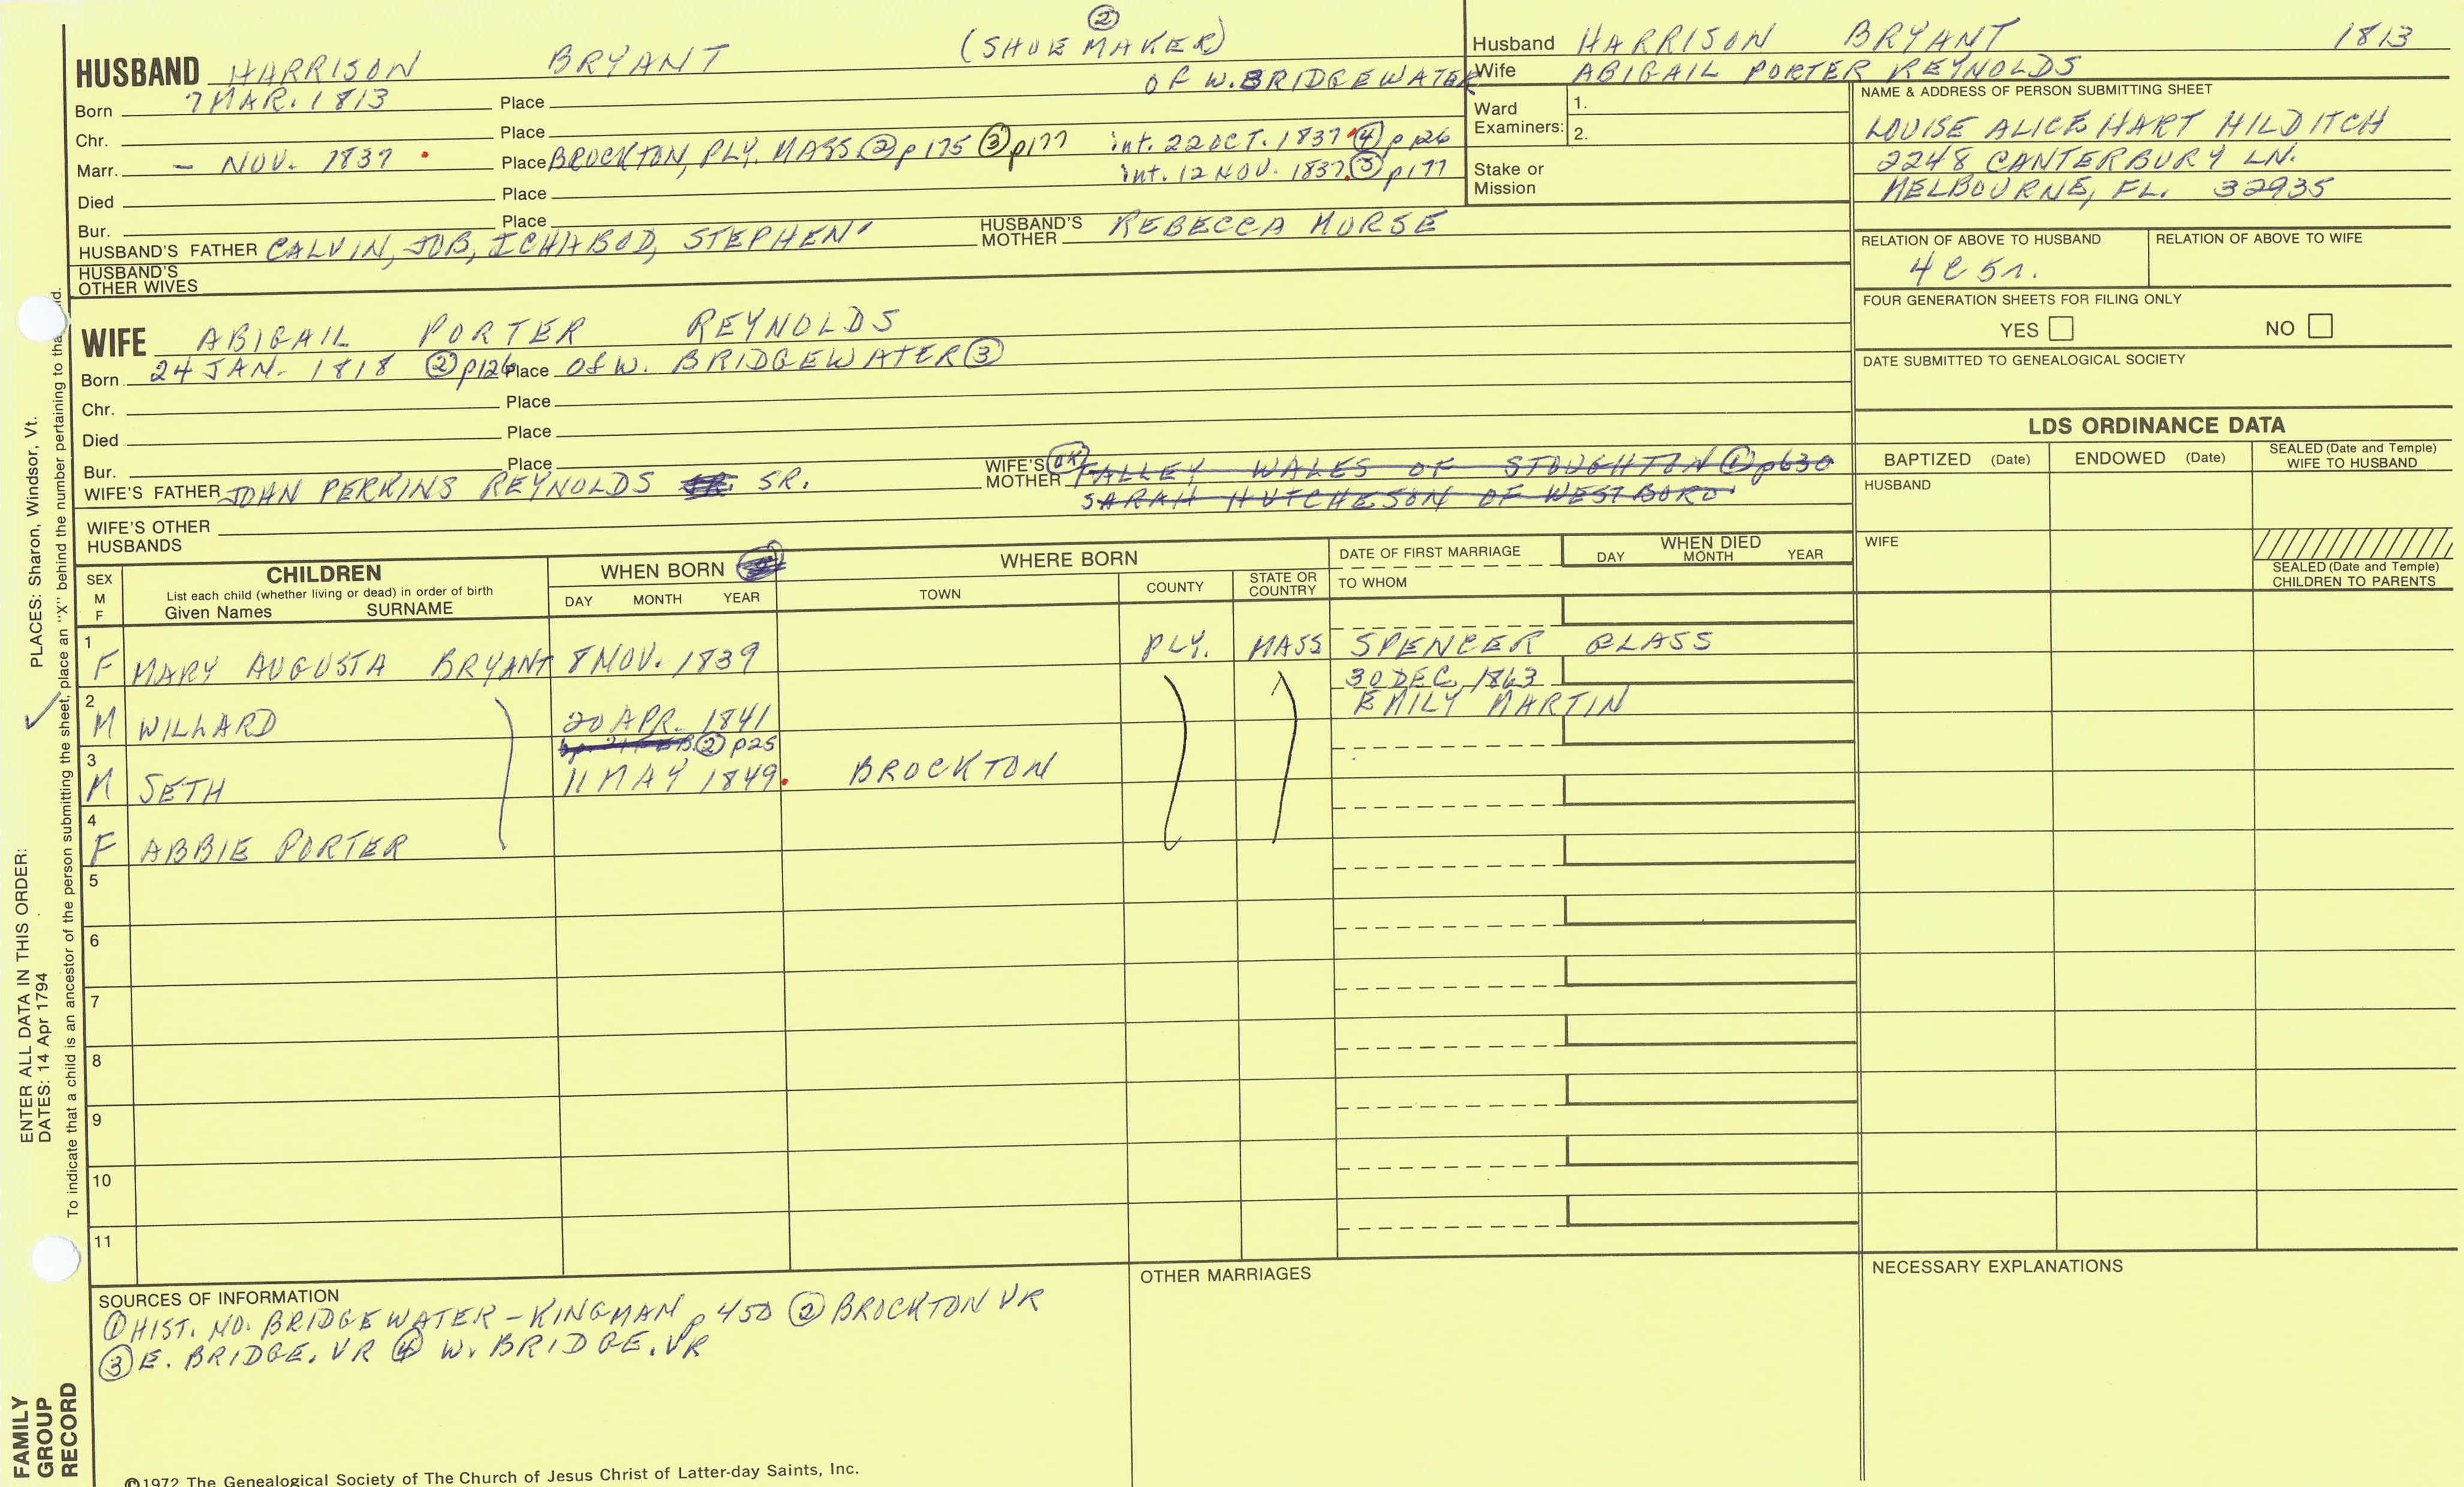 ②
(SHOE MAKER)
HUSBAND HARRISON BRYANT
OF W. BRIDGEWATER
Born 7 MAR. 1813 Place
Chr. Place
Marr. — NOV. 1837 Place BROCKTON, PLY. MASS ② p175 ③ p177 int. 22 OCT. 1837 ④ p126
int. 12 NOV. 1837 ③ p177
Died Place
Bur. Place
HUSBAND'S FATHER CALVIN, JOB, ICHABOD, STEPHEN HUSBAND'S MOTHER REBECCA MORSE
HUSBAND'S OTHER WIVES
WIFE ABIGAIL PORTER REYNOLDS
Born 24 JAN. 1818 ② p126 Place Of W. BRIDGEWATER ③
Chr. Place
Died Place
Bur. Place
WIFE'S FATHER JOHN PERKINS REYNOLDS JR. SR. WIFE'S MOTHER OR FALLEY WALES OF STOUGHTON ① p630
SARAH HUTCHESON OF WESTBORO
WIFE'S OTHER HUSBANDS
Husband HARRISON BRYANT 1813
Wife ABIGAIL PORTER REYNOLDS
Ward Examiners: 1.
2.
Stake or Mission
NAME & ADDRESS OF PERSON SUBMITTING SHEET
LOUISE ALICE HART HILDITCH
2248 CANTERBURY LN.
MELBOURNE, FL. 32935
RELATION OF ABOVE TO HUSBAND RELATION OF ABOVE TO WIFE
4C5r.
FOUR GENERATION SHEETS FOR FILING ONLY
YES NO
DATE SUBMITTED TO GENEALOGICAL SOCIETY
LDS ORDINANCE DATA
BAPTIZED (Date) ENDOWED (Date) SEALED (Date and Temple) WIFE TO HUSBAND
HUSBAND
WIFE
SEALED (Date and Temple) CHILDREN TO PARENTS
SEX M F
CHILDREN
List each child (whether living or dead) in order of birth
Given Names SURNAME
WHEN BORN
DAY MONTH YEAR
WHERE BORN
TOWN COUNTY STATE OR COUNTRY
DATE OF FIRST MARRIAGE
TO WHOM
WHEN DIED
DAY MONTH YEAR
1 F MARY AUGUSTA BRYANT 8 NOV. 1839 PLY. MASS SPENCER GLASS
2 M WILLARD 20 APR. 1841 30 DEC. 1863
EMILY MARTIN
② p25
3 M SETH 11 MAY 1849 BROCKTON
4 F ABBIE PORTER
5
6
7
8
9
10
11
SOURCES OF INFORMATION
① HIST. NO. BRIDGEWATER – KINGMAN p 450 ② BROCKTON VR
③ E. BRIDGE. VR ④ W. BRIDGE. VR
OTHER MARRIAGES
NECESSARY EXPLANATIONS
©1972 The Genealogical Society of The Church of Jesus Christ of Latter-day Saints, Inc.
ENTER ALL DATA IN THIS ORDER:
DATES: 14 Apr 1794 PLACES: Sharon, Windsor, Vt.
To indicate that a child is an ancestor of the person submitting the sheet, place an "X" behind the number pertaining to that
FAMILY
GROUP
RECORD